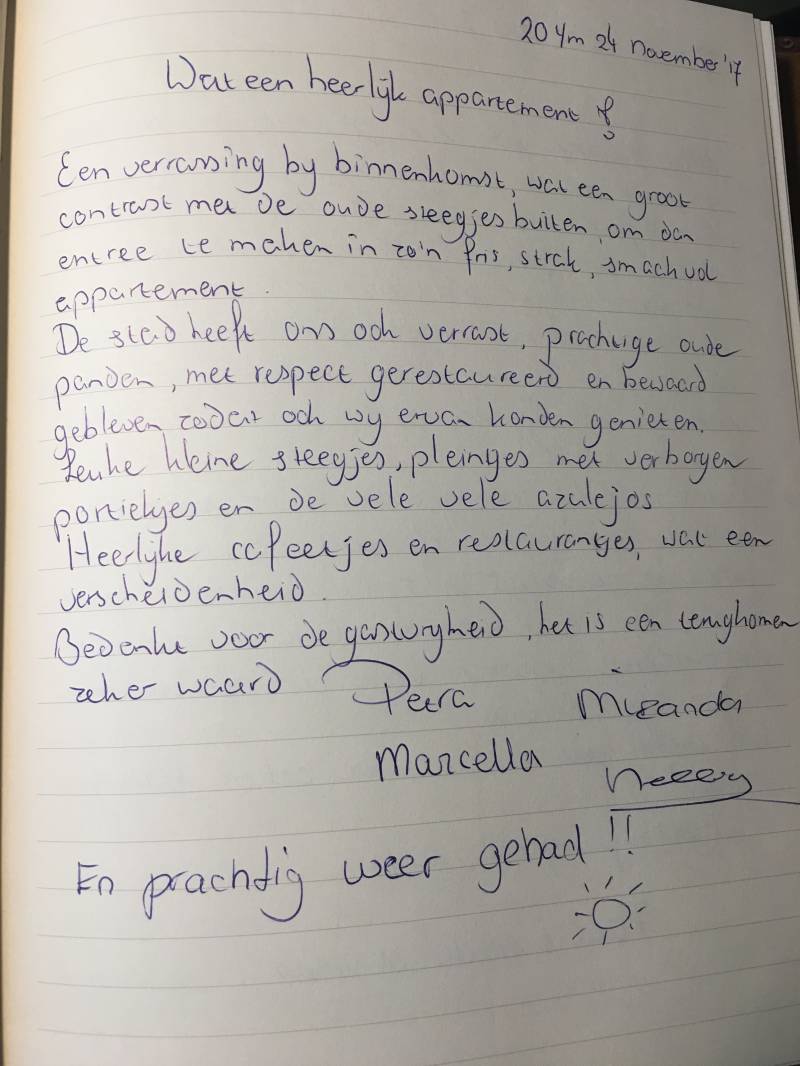 20 t/m 24 november '17
Wat een heerlijk appartement !
Een verrassing by binnenkomst, wat een groot
contrast met de oude steegjes buiten, om dan
entree te maken in zo'n fris, strak, smaakvol
appartement.
De stad heeft ons ook verrast, prachtige oude
panden, met respect gerestaureerd en bewaard
gebleven zodat ook wy ervan konden genieten.
Leuke kleine steegjes, pleintjes met verborgen
portiekjes en de vele vele azulejos
Heerlijke cafeetjes en restaurantjes, wat een
verscheidenheid.
Bedankt voor de gastvryheid, het is een terugkomen
zeker waard
Petra Miranda
Marcella Nelly
En prachtig weer gehad !!